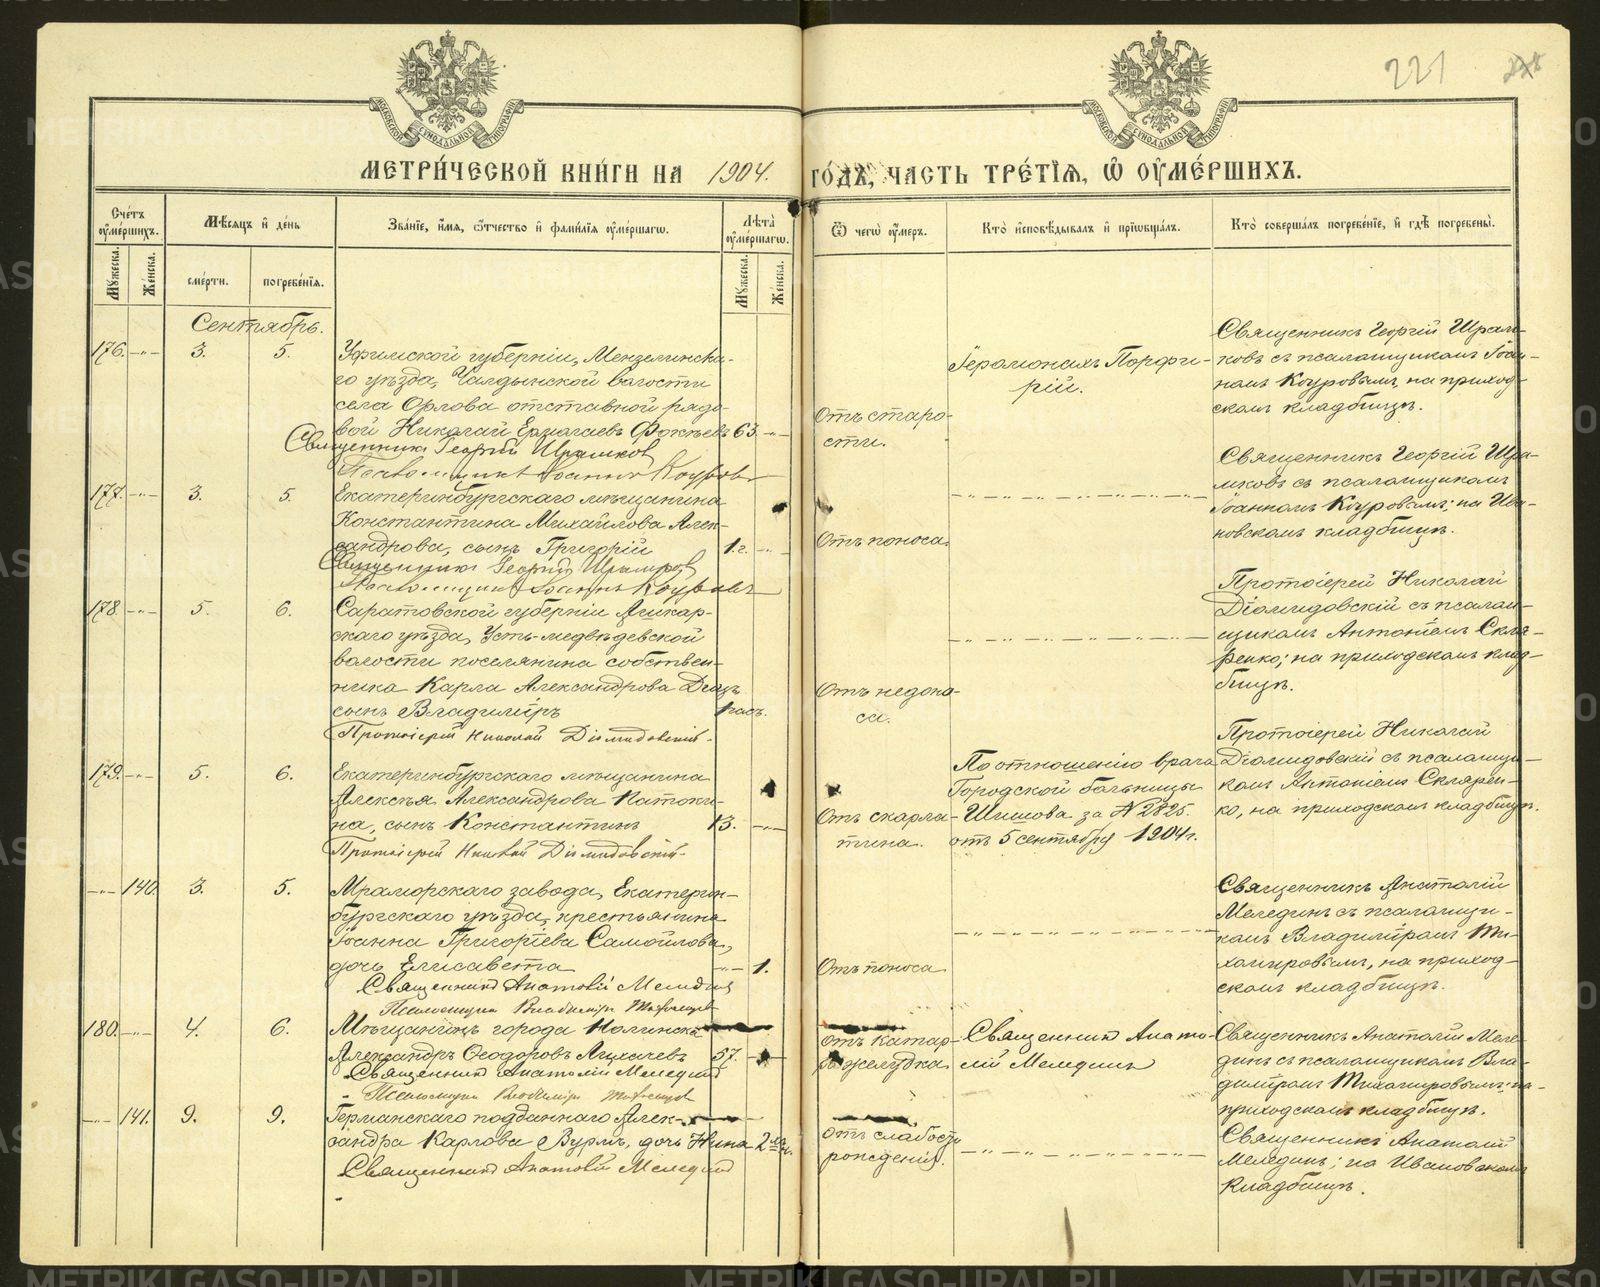 221
МЕТРИ́ЧЕСКОЙ КНИ́ГИ НА 1904. ГО́ДЪ, ЧАСТЬ ТРЕ́ТІѦ, Ѡ ОУМЕ́РШИХЪ.
Сче́тъ оуме́ршихъ.
Мѣ́сяцъ и де́нь
Зва́ніе, и́мя, ѻ́тчество и фами́лія оуме́ршагѡ.
Лѣта̀ оуме́ршагѡ.
Ѿ чегѡ̀ оу́меръ.
Кто̀ исповѣ́дывалъ и пріѡбща́лъ.
Кто̀ соверша́лъ погребе́ніе, и гдѣ̀ погребены̀.
Мꙋ́жеска.
Же́нска.
сме́рти.
погребе́нія.
Мꙋ́жеска.
Же́нска.
Сентябрь.
176. -"- 3. 5.
Уфимской губерніи, Мензелинска-
го уѣзда,
волости
села Орлова отставной рядо-
вой Николай Фокѣевъ 63. -"-
Священникъ Георгій
Псаломщикъ Іоаннъ Коуровъ
Отъ старо-
сти.
Іеромонахъ Порфи-
рій.
Священникъ Георгій
ковъ съ псаломщикомъ Іоан-
номъ Коуровымъ, на приход-
скомъ кладбищѣ.
177. -"- 3. 5.
Екатеринбургскаго мѣщанина
Константина Михайлова Алек-
сандрова, сынъ Григорій 1 г. -"-
Священникъ Георгій
Псаломщикъ Іоаннъ Коуровъ
Отъ поноса.
Священникъ Георгій
ковъ съ псаломщикомъ
Іоанномъ Коуровымъ; на Ива-
новскомъ кладбищѣ.
178. -"- 5. 6.
Саратовской губерніи
скаго уѣзда, Усть-медвѣдевской
волости поселянина собствен-
ника Карла Александрова
сынъ Владиміръ 1 часъ.
Протоіерей Николай Діомидовскій.
Отъ недоно-
са.
Протоіерей Николай
Діомидовскій съ псалом-
щикомъ Антоніемъ Скля-
ренко; на приходскомъ клад-
бищѣ.
179. -"- 5. 6.
Екатеринбургскаго мѣщанина
Алексѣя Александрова Катоки-
на, сынъ Константинъ 13. -"-
Протоіерей Николай Діомидовскій.
Отъ скарла-
тина.
По отношенію врача
Городской больницы
Шишова за № 2825.
отъ 5 сентября 1904 г.
Протоіерей Николай
Діомидовскій съ псаломщи-
комъ Антоніемъ Склярен-
ко, на приходскомъ кладбищѣ.
-"- 140. 3. 5.
Мраморскаго завода, Екатерин-
бургскаго уѣзда, крестьянина
Іоанна Григоріева Самойлова,
дочь Елисавета -"- 1.
Священникъ Анатолій Меледин
Псаломщикъ Владиміръ
Отъ поноса
Священникъ Анатолій
Мелединъ съ псаломщи-
комъ Владиміромъ Ти-
хомировымъ, на приход-
скомъ кладбищѣ.
180. -"- 4. 6.
Мѣщанинъ города Нолинска
Александръ Ѳеодоровъ Лихачевъ 57. -"-
Священникъ Анатолій Меледин
Псаломщикъ Владиміръ
отъ катар-
ра желудка
Священникъ Анато-
лій Мелединъ
Священникъ Анатолій Меле-
динъ съ псаломщикомъ Вла-
диміромъ Тихомировымъ на
приходскомъ кладбищѣ.
-"- 141. 9. 9.
Германскаго подданнаго Алек-
сандра Карлова Вурмъ, дочь Нина 2 мѣс.
Священникъ Анатолій Меледин
отъ слабости
рожденія.
Священникъ Анатолій
Мелединъ; на Ивановскомъ
кладбищѣ.
METRIKI.GASO-URAL.RU